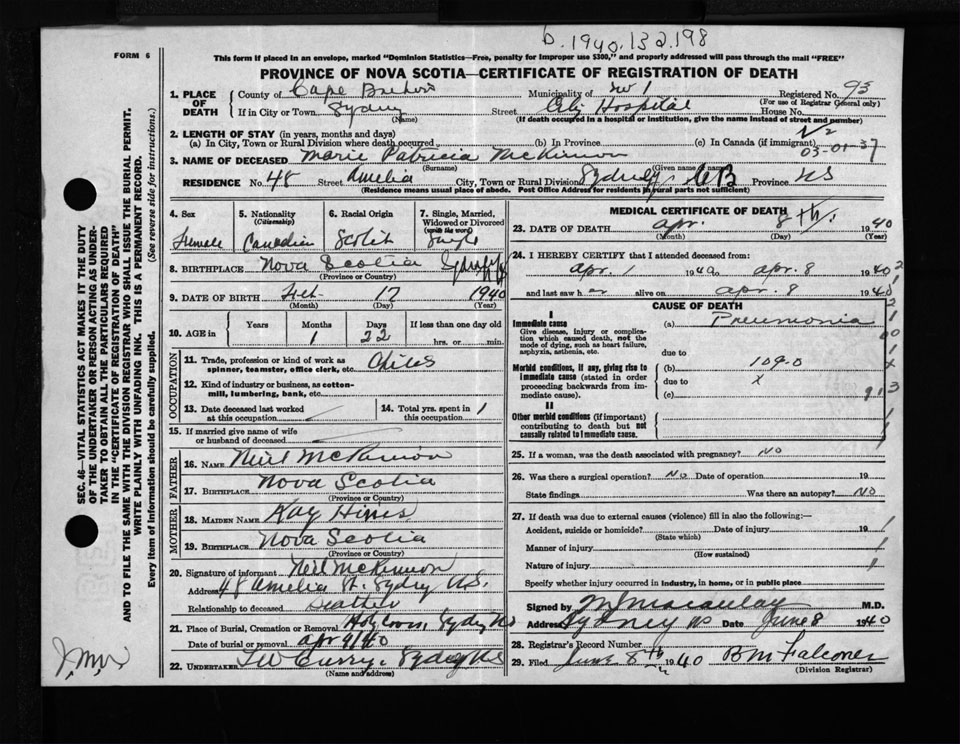 b. 1940. 132.198
FORM 6
This form if placed in an envelope, marked "Dominion Statistics—Free, penalty for improper use $300," and properly addressed will pass through the mail "FREE"
PROVINCE OF NOVA SCOTIA—CERTIFICATE OF REGISTRATION OF DEATH
1. PLACE OF DEATH
County of Cape Breton Municipality of Registered No. 93
(For use of Registrar General only)
If in City or Town Sydney Street City Hospital House No.
(Name) (If death occurred in a hospital or institution, give the name instead of street and number)
2. LENGTH OF STAY (in years, months and days)
(a) In City, Town or Rural Division where death occurred (b) In Province (c) In Canada (if immigrant)
03-01-37
3. NAME OF DECEASED Marie Patricia McKinnon
(Surname) (Given name or names)
RESIDENCE No. 48 Street Amelia City, Town or Rural Division Sydney, CB Province NS
(Residence means usual place of abode. Post Office Address for residents in rural parts not sufficient)
4. Sex 5. Nationality (Citizenship) 6. Racial Origin 7. Single, Married, Widowed or Divorced (write the word)
Female Canadian Scotch Single
8. BIRTHPLACE Nova Scotia Sydney
(Province or Country)
9. DATE OF BIRTH Feb. 17 1940
(Month) (Day) (Year)
10. AGE in Years Months Days If less than one day old
1 22 hrs. or min.
OCCUPATION
11. Trade, profession or kind of work as spinner, teamster, office clerk, etc. Child
12. Kind of industry or business, as cotton-mill, lumbering, bank, etc.
13. Date deceased last worked at this occupation
14. Total yrs. spent in this occupation
15. If married give name of wife or husband of deceased
FATHER
16. NAME Neil McKinnon
17. BIRTHPLACE Nova Scotia
(Province or Country)
MOTHER
18. MAIDEN NAME Kay Hines
19. BIRTHPLACE Nova Scotia
(Province or Country)
20. Signature of informant Neil McKinnon
Address 48 Amelia St. Sydney N.S.
Relationship to deceased
21. Place of Burial, Cremation or Removal Holy Cross, Sydney NS
Date of burial or removal Apr 9/40
22. UNDERTAKER TW Curry, Sydney NS
(Name and address)
MEDICAL CERTIFICATE OF DEATH
23. DATE OF DEATH Apr. 8th, 1940
(Month) (Day) (Year)
24. I HEREBY CERTIFY that I attended deceased from:
Apr. 1 1940 Apr. 8 1940
and last saw her alive on Apr. 8 1940
CAUSE OF DEATH
I
Immediate cause
Give disease, injury or complication which caused death, not the mode of dying, such as heart failure, asphyxia, asthenia, etc.
(a) Pneumonia
due to
Morbid conditions, if any, giving rise to immediate cause (stated in order proceeding backwards from immediate cause).
(b) 109-0
due to x
(c)
II
Other morbid conditions (if important) contributing to death but not causally related to immediate cause.
25. If a woman, was the death associated with pregnancy? NO
26. Was there a surgical operation? NO Date of operation 19
State findings Was there an autopsy? NO
27. If death was due to external causes (violence) fill in also the following:—
Accident, suicide or homicide? Date of injury 19
(State which)
Manner of injury
(How sustained)
Nature of injury
Specify whether injury occurred in industry, in home, or in public place
Signed by M J Macaulay M.D.
Address Sydney NS Date June 8 1940
28. Registrar's Record Number
29. Filed June 8th 1940 B M Falconer
(Division Registrar)
SEC. 46—VITAL STATISTICS ACT MAKES IT THE DUTY
OF THE UNDERTAKER OR PERSON ACTING AS UNDER-
TAKER TO OBTAIN ALL THE PARTICULARS REQUIRED
IN THE "CERTIFICATE OF REGISTRATION OF DEATH"
AND TO FILE THE SAME WITH THE DIVISION REGISTRAR WHO SHALL ISSUE THE BURIAL PERMIT.
WRITE PLAINLY WITH UNFADING INK. THIS IS A PERMANENT RECORD.
Every item of information should be carefully supplied. (See reverse side for instructions.)